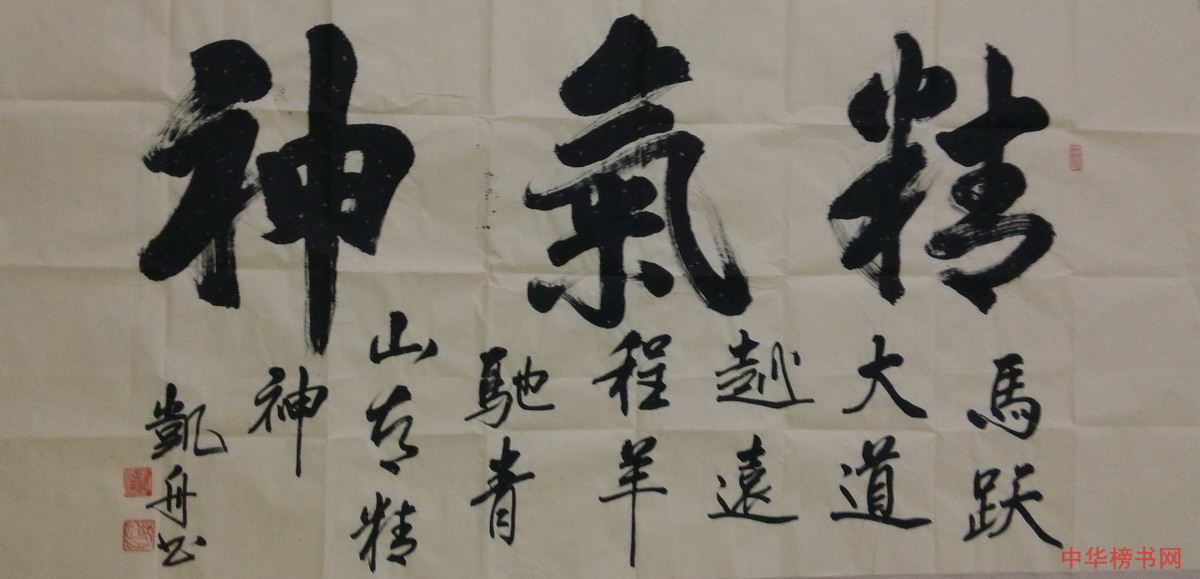 精氣神
馬跃
大道
越遠
程羊
馳青
山有精
神
凱舟书
中华榜书网